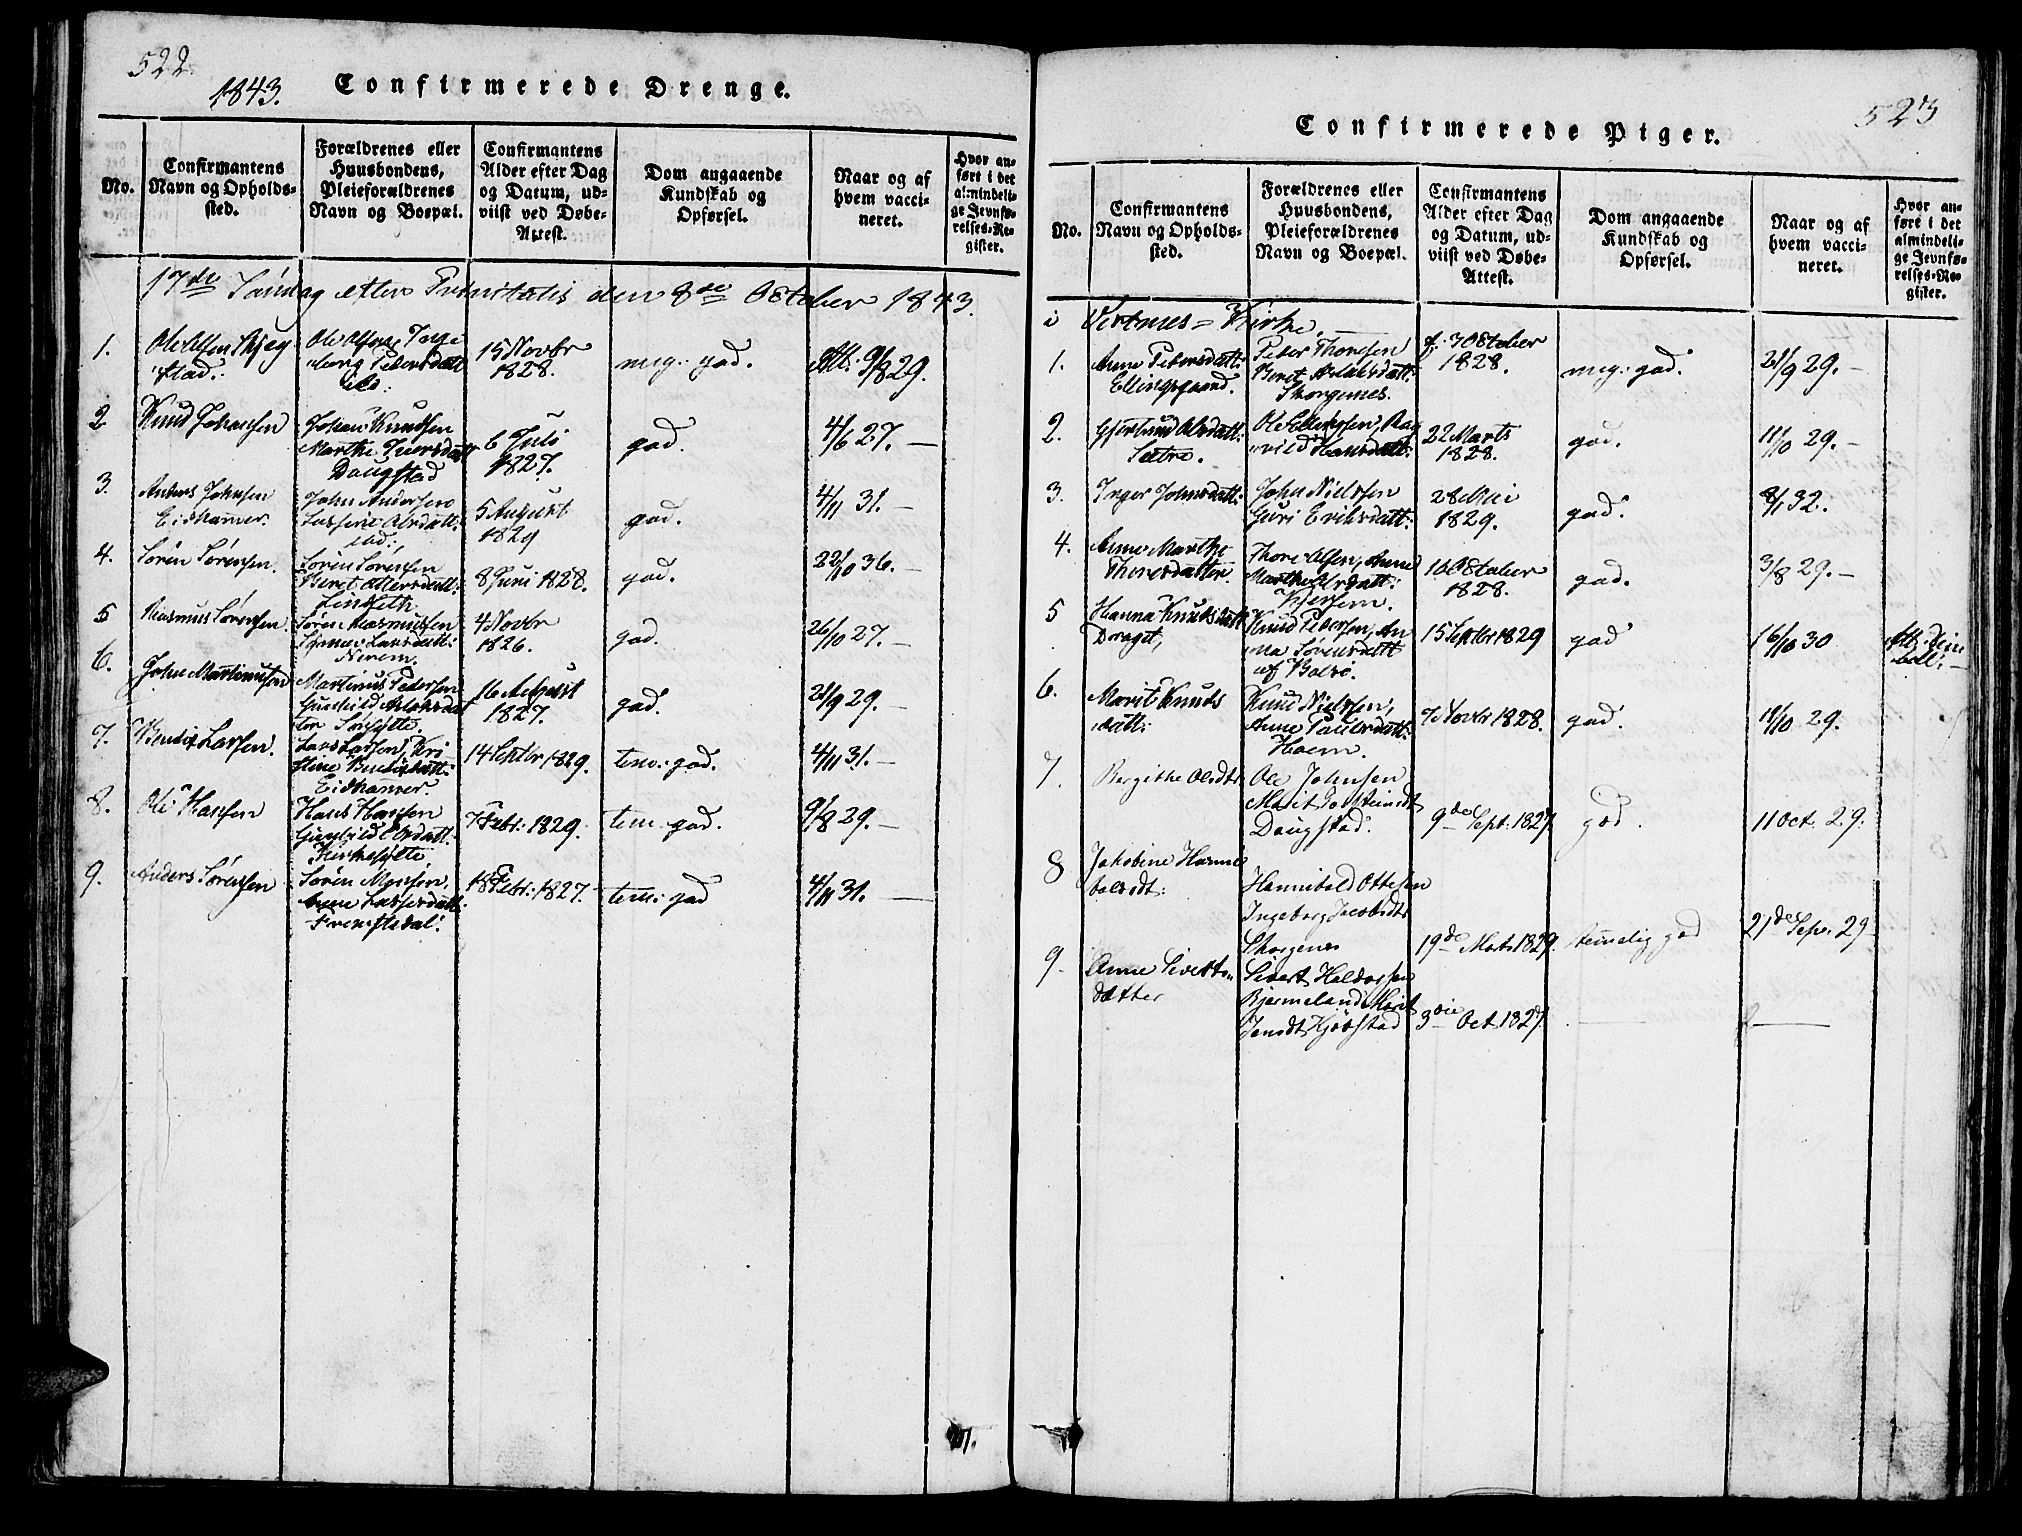 522.
1843. Confirmerede Drenge.
No.
Confirmantens
Navn og Opholds-
sted.
Forældrenes eller
Huusbondens,
Pleieforældrenes
Navn og Boepæl.
Confirmantens
Alder efter Dag
og Datum, ud-
viist ved Døbe-
Attest.
Dom angaaende
Kundskab og
Opførsel.
Naar og af
hvem vacci-
neret.
Hvor an-
ført i det
almindeli-
ge Jevnfø-
relses-Re-
gister.
17de Søndag efter Trinitatis den 8de October 1843.
1.
Ole Olsen
stad.
Ole Olsen, Inge
borg Pedersdatt
15 Novbr
1828.
meg: god.
Att. 9/8 29.
2.
Knud Johansen
Johan Knudsen
Marthe
Daugstad
6 Juli
1827.
god.
4/6 27. —
3.
Anders Johnsen
Eidhamer.
John Andersen
Olsdatt:
5 August
1829
god.
4/11 31. —
4.
Søren Sørensen.
Søren Sørensen
Beret Ottersdatt:
Lindseth
8 Juni 1828.
god.
22/10 36. —
5
Rasmus Sørensen.
Søren Rasmussen
Larsdatt:
Nerem.
4 Novbr
1826.
god.
26/10 27. —
6.
John Martinusen
Martinus Pedersen
Gunhild Aslaksdat
ter
16 August
1827.
god.
21/9 29. —
7.
Bendix Larsen.
Lars Larsen, Kri
stine Bendixdatt:
Eidhamer
14 Septbr 1829.
tem: god.
4/11 31. —
8.
Ole Hansen
Hans Hansen
Gunhild Olsdatt:
Kirkesylte
7 Febr: 1829.
tem: god.
9/8 29. —
9.
Anders Sørensen
Søren
Anne Lassesdatt:
Fremstedal:
18 Febr: 1827.
tem: god
4/11 31. —
523
Confirmerede Piger.
No.
Confirmantens
Navn og Opholds-
sted.
Forældrenes eller
Huusbondens,
Pleieforældrenes
Navn og Boepæl.
Confirmantens
Alder efter Dag
og Datum, ud-
viist ved Døbe-
Attest.
Dom angaaende
Kundskab og
Opførsel.
Naar og af
hvem vacci-
neret.
Hvor an-
ført i det
almindeli-
ge Jevnfø-
relses-Re-
gister.
i Vestnes = Kirke.
1.
Anne Pedersdatt:
Ellingsgaard.
Peder Thoresen
Beret Aslaksdatt:
Skorgenes.
f. 7 October
1828.
meg: god.
21/9 29. —
2.
Gjertrud Olsdatt:
Sætre.
Ole Ellingsen, Rag
nild Hansdatt:
22 Marts
1828.
god.
11/10 29. —
3.
Inger Johnsdatt:
John Nielsen
Guri Eriksdatt:
28 Mai
1829.
god.
8/1 32.
4.
Anne Marthe
Thoresdatter
Thore Olsen, Anne
Marthe Olsdatt:
Kjersem.
16 October
1828.
god.
3/8 29. —
5
Hanna Knudsdatt
Draget,
Knud Pedersen, An
na Sørensdatt
af Bolsø.
15 Septbr 1829
god
16/10 30
6.
Marit Knuds
datt:
Knud Nielsen,
Anne Paulsdatt:
Hoem.
7 Novbr 1828.
god.
11/10 29.
7.
Bergithe Olsdtr
Ole Johnsen
Marit Torsteinsdt
Daugstad.
9de Sept: 1827
god.
11 Oct. 29.
8
Jakobine Hanni
balsdt:
Hannibald Ottesen
Ingeborg Jacobsdtr
Skorgenes
19de Mart: 1829.
temelig god
21de Sep. 29
9.
Anne Siverts
datter
Sivert Haldorsen
Bjermeland, Marit
Jensdt Kjøbstad
3die Oct. 1827.